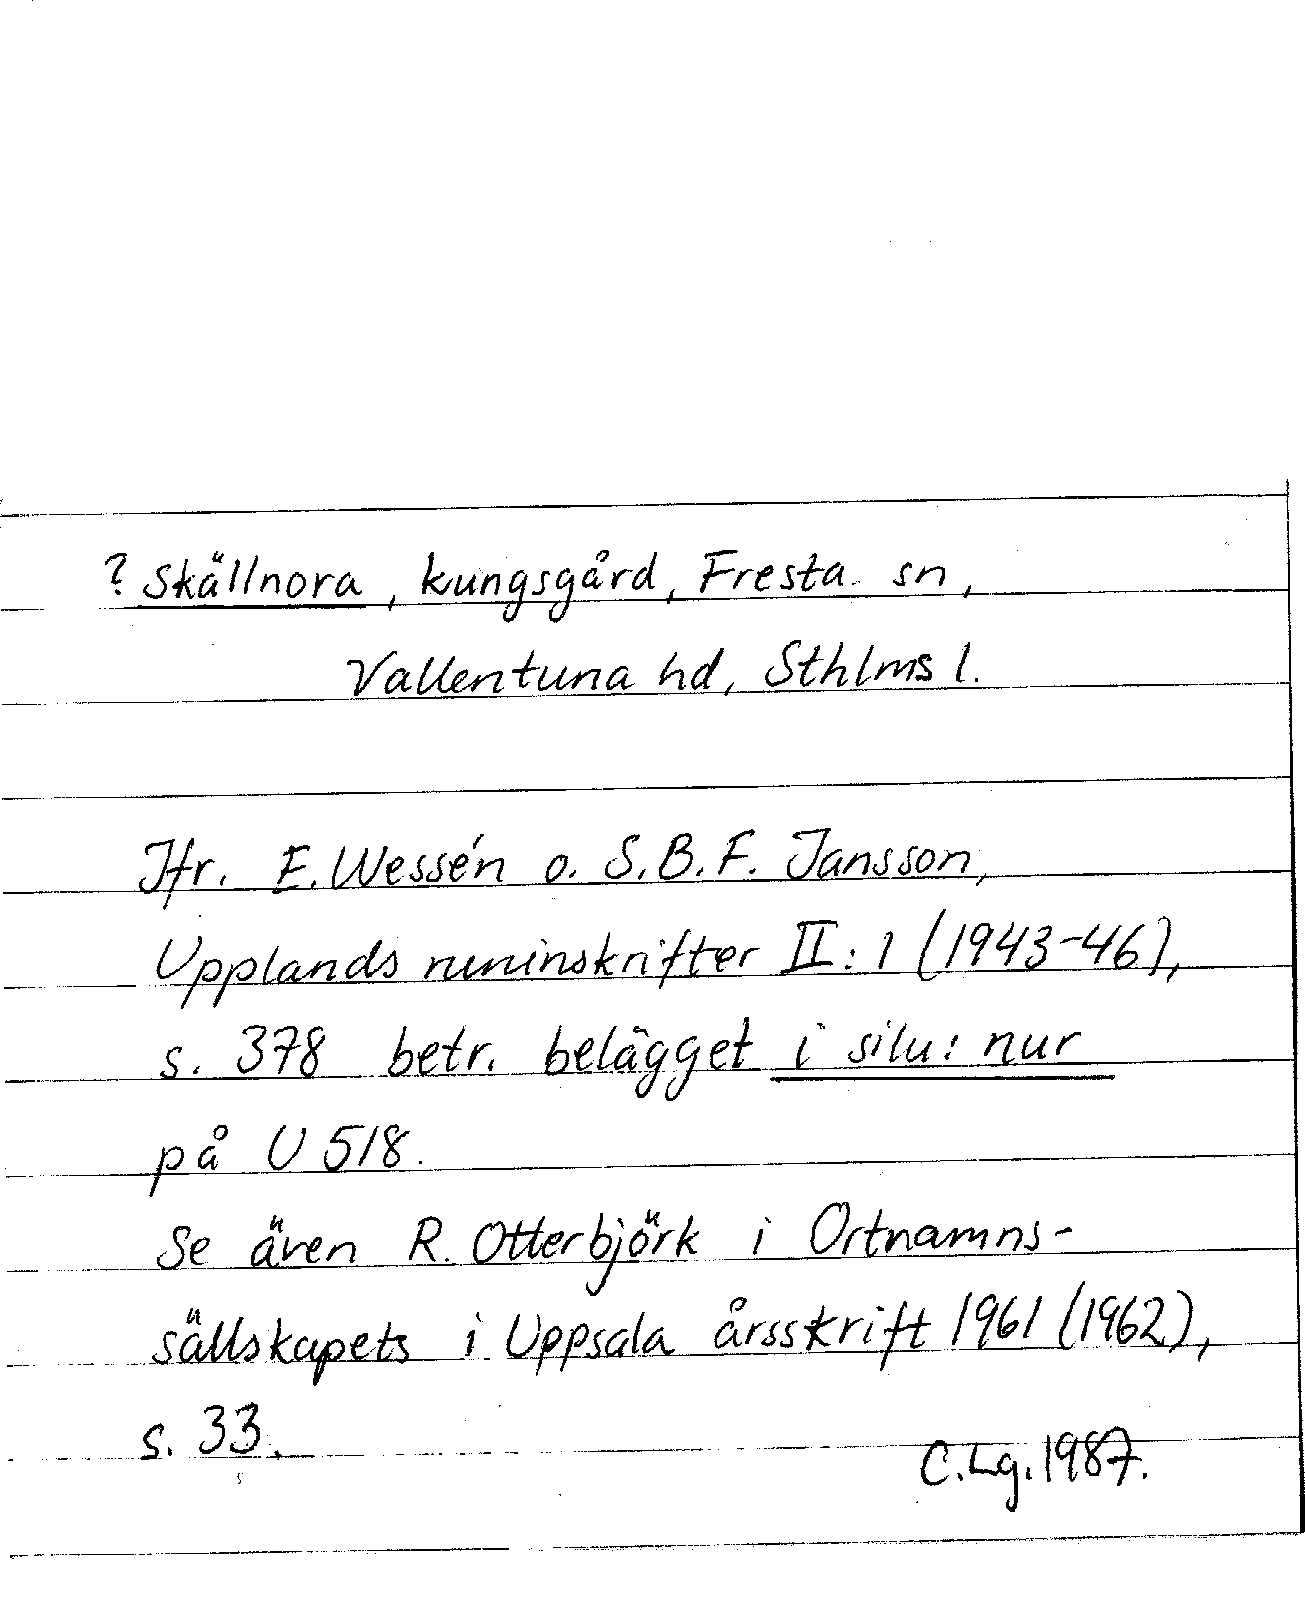 ? Skällnora, kungsgård, Fresta sn,
Vallentuna hd, Sthlms l.
Jfr. E. Wessén o. S.B.F. Jansson,
Upplands runinskrifter II:1 (1943-46),
s. 378 betr. belägget i silu:nur
på U 518.
Se även R. Otterbjörk i Ortnamns-
sällskapets i Uppsala årsskrift 1961 (1962),
s. 33.
C.Lg.1987.